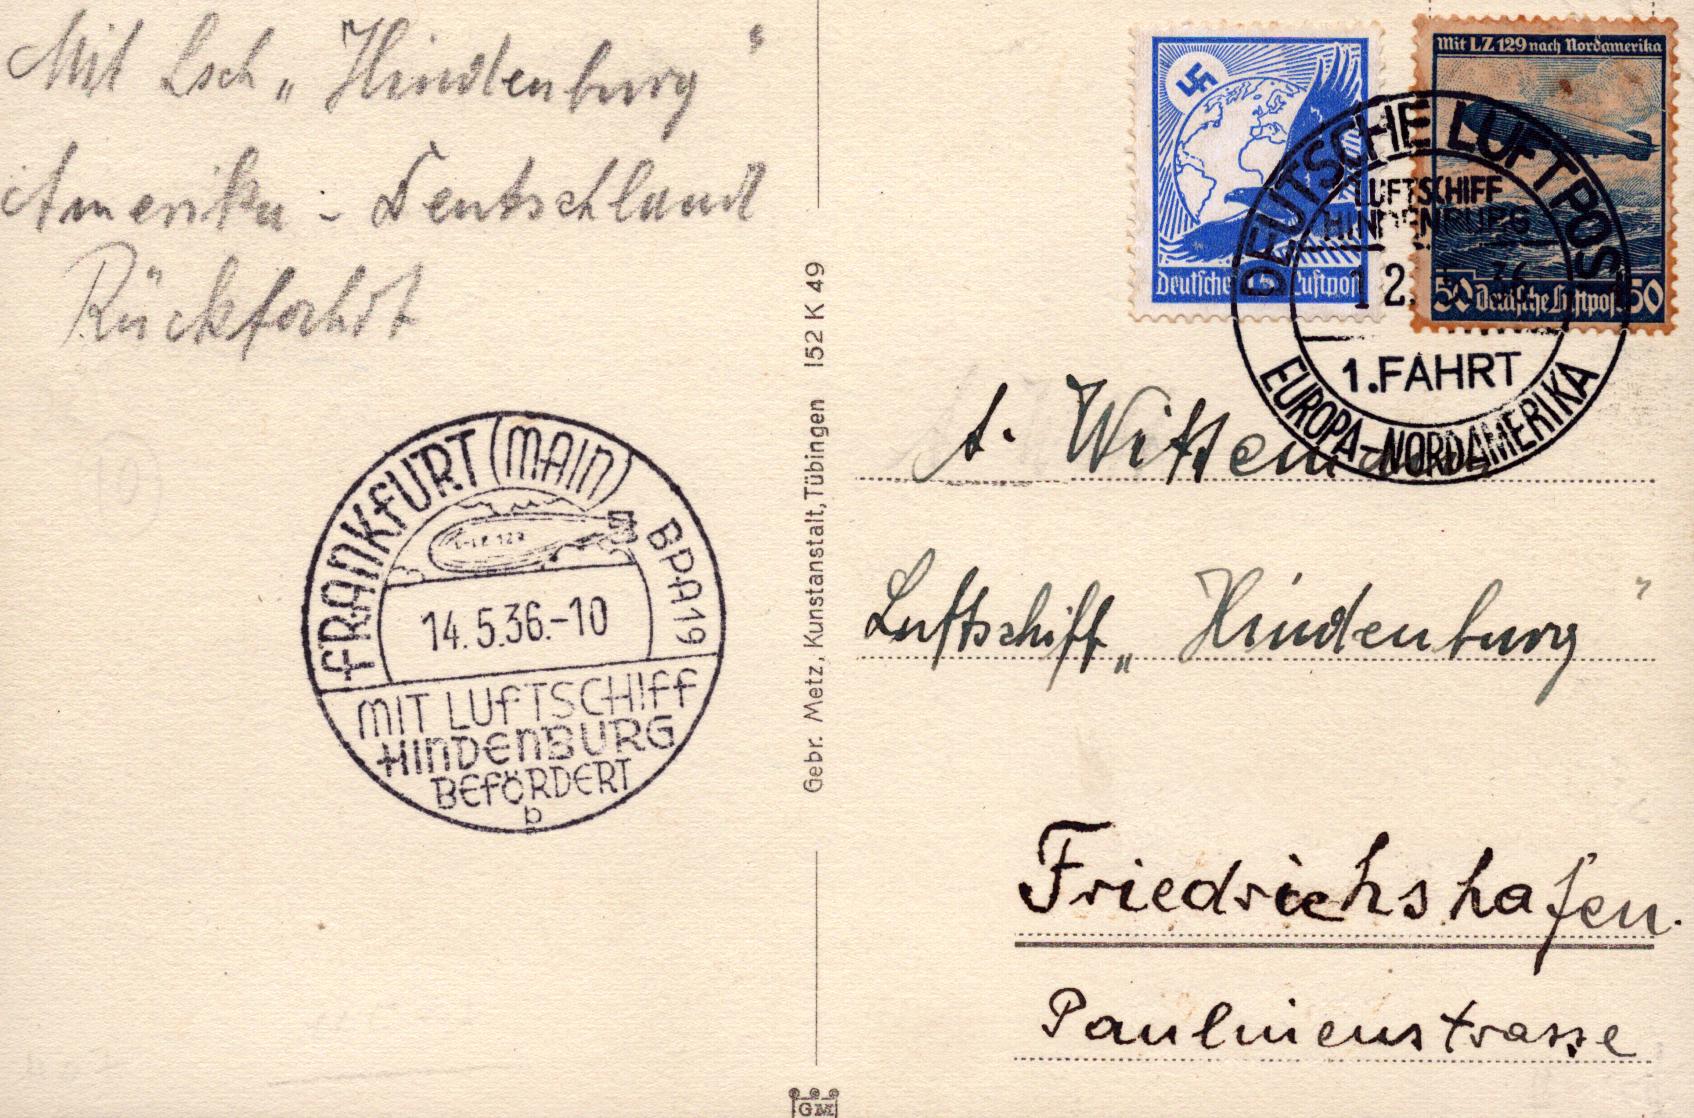 Mit Lsch „Hindenburg"
Amerika - Deutschland
Rückfahrt
FRANKFURT (MAIN) BPA 19
14.5.36.-10
MIT LUFTSCHIFF
HINDENBURG
BEFÖRDERT
b
Gebr. Metz, Kunstanstalt, Tübingen 152 K 49
GM
Deutsche 15 Luftpost
Mit LZ 129 nach Nordamerika
50 Deutsche Luftpost 50
DEUTSCHE LUFTPOST
LUFTSCHIFF
HINDENBURG
12. 36
1.FAHRT
EUROPA-NORDAMERIKA
A.
Luftschiff „Hindenburg"
Friedrichshafen.
Paulinenstrasse